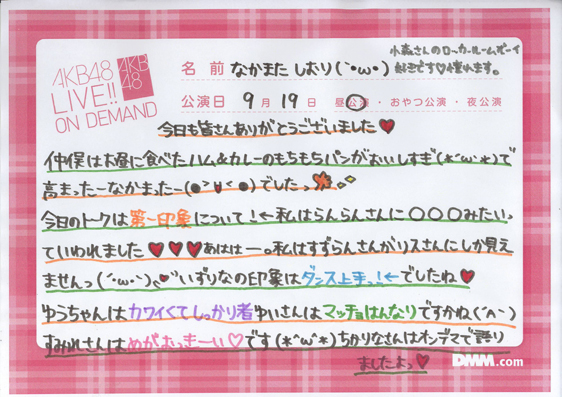 AKB48
LIVE!!
ON DEMAND
AKB
48
小森さんのロッカールームボーイ
好きです♡憧れます。
名前 なかまた しおり(`・ω・´)
公演日 9月19日 昼公演・おやつ公演・夜公演
今日も皆さんありがとうございました♥
仲俣はお昼に食べたハム&カレーのもちもちパンがおいしすぎ(*´ω`*)で
高まったーなかまったー(●>ω<●)でしたっ
今日のトークは第一印象について!←私はらんらんさんに○○○みたいっ
ていわれました♥♥♥あははー。私はすずらんさんがリスさんにしか見え
ませんっ(´・ω・`)いずりなの印象はダンス上手っ!←でしたね♥
ゆうちゃんはカワイくてしっかり者ゆいさんはマッチョはんなりですかね(´^`)
すみれさんはめがおっきーい♡です(*´ω`*)ちかりなさんはオンデマで語り
ましたよっ♥
DMM.com